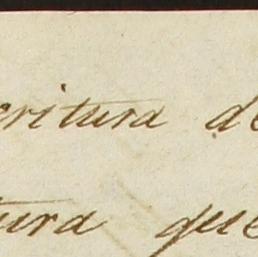 critura de
tura que